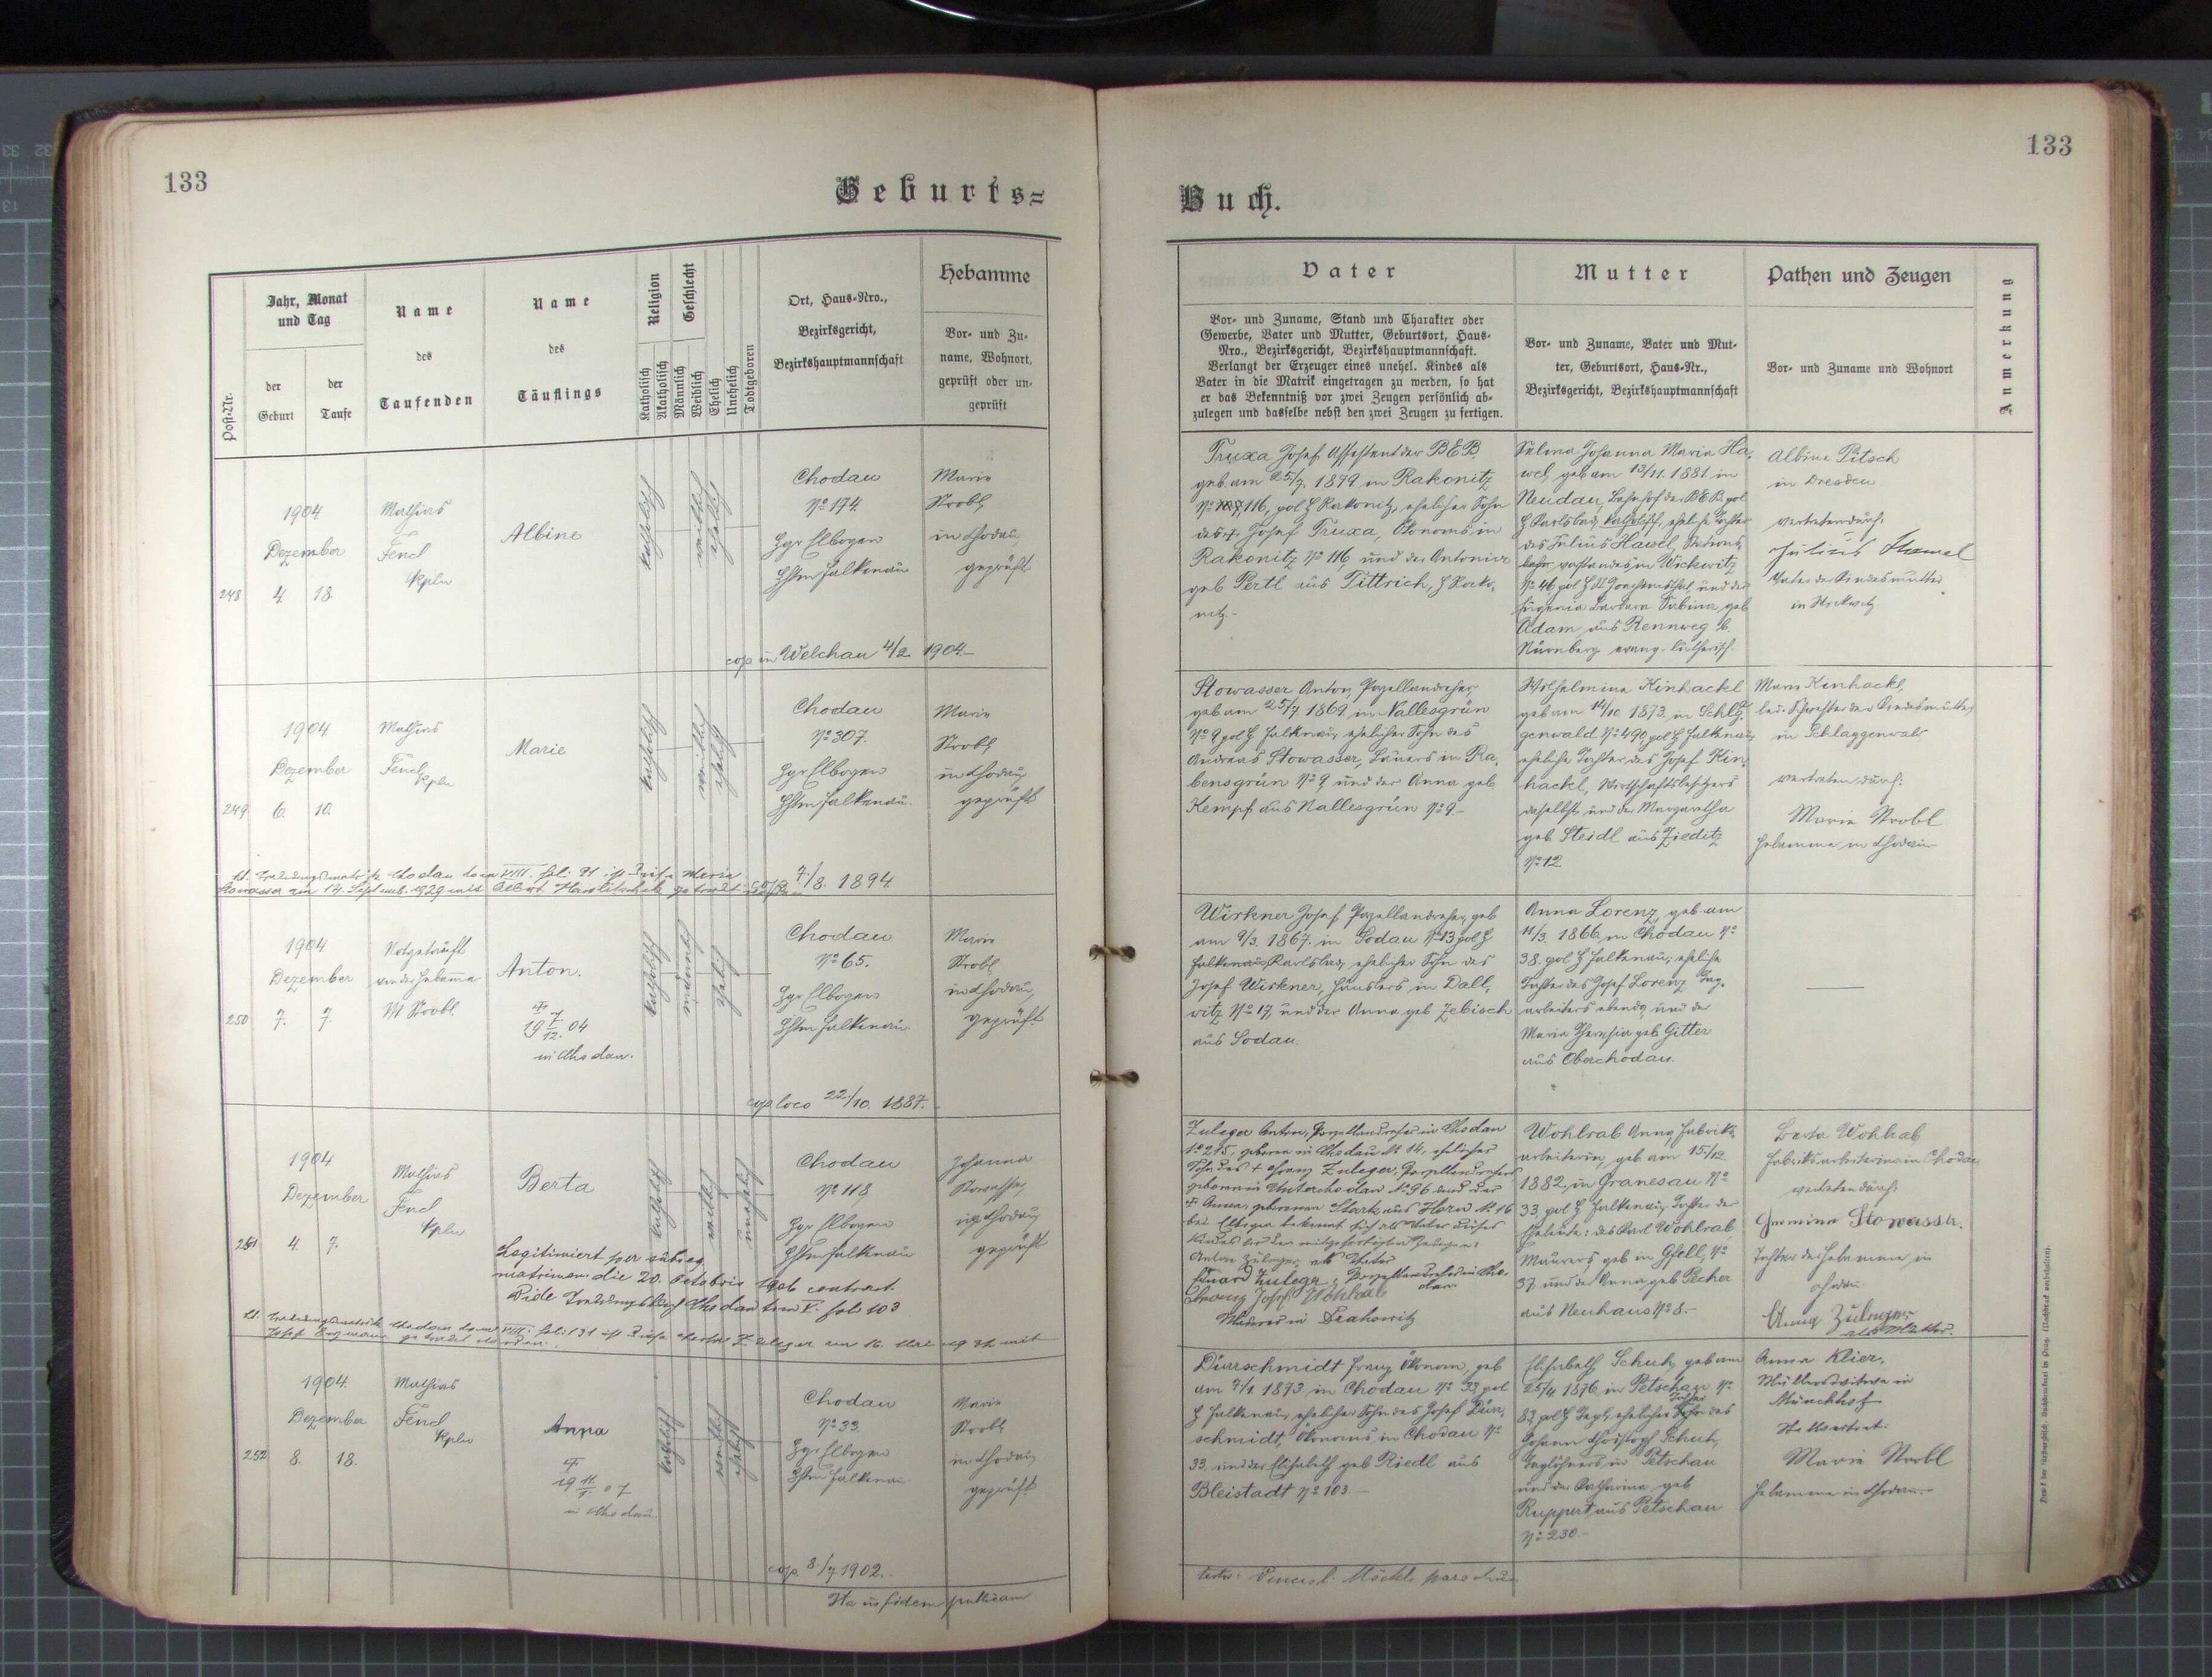 133
133
Geburts=
Buch.
Post-Nr.
Jahr, Monat
und Tag
der
Geburt
der
Taufe
Name
des
Taufenden
Name
des
Täuflings
Religion
Katholisch
Akatholisch
Geschlecht
Männlich
Weiblich
Ehelich
Unehelich
Todtgeboren
Ort, Haus-Nro.,
Bezirksgericht,
Bezirkshauptmannschaft
Hebamme
Vor- und Zu-
name, Wohnort,
geprüft oder un-
geprüft
Vater
Vor- und Zuname, Stand und Charakter oder
Gewerbe, Vater und Mutter, Geburtsort, Haus-
Nro., Bezirksgericht, Bezirkshauptmannschaft.
Verlangt der Erzeuger eines unehel. Kindes als
Vater in die Matrik eingetragen zu werden, so hat
er das Bekenntniß vor zwei Zeugen persönlich ab-
zulegen und dasselbe nebst den zwei Zeugen zu fertigen.
Mutter
Vor- und Zuname, Vater und Mut-
ter, Geburtsort, Haus-Nr.,
Bezirksgericht, Bezirkshauptmannschaft
Pathen und Zeugen
Vor- und Zuname und Wohnort
Anmerkung
248
1904
Dezember
4. 18.
Mathias
Fencl
Kpln
Albine
katholisch
weiblich
ehelich
Chodau
No 174.
Bzg Elbogen
Bhtm Falkenau
Marie
Strobl
in Chodau,
geprüft
cop in Welchau 4/2. 1904.-
Truxa Josef Assistent der B.E.B.
geb am 25/7. 1879 in Rakonitz
No 116, pol B Rakonitz, ehelicher Sohn
des + Josef Truxa, Ökonoms in
Rakonitz No 116 und der Antonia
geb Pertl aus Tittrich, B Rako-
nitz.-
Selma Johanna Maria Ha-
wel, geb am 13/11. 1881 in
Neudau, Bahnhof der B.E.B. pol
B Karlsbad, katholisch, eheliche Tochter
des Julius Hawel, Stations-
vorstandes in Wickwitz
No 46 pol B St Joachimsthal, und der
Eugenia Barbara Sabina geb
Adam aus Rennweg b.
Nürnberg evang. lutherisch.
Albine Pitsch
in Dresden
vertreten durch:
Julius Hawel
Vater der Kindesmutter
in Wickwitz
249
1904
Dezember
6. 10.
Mathias
Fencl
Kpln
Marie
katholisch
weiblich
ehelich
Chodau
No 307.
Bzg Elbogen
Bhtm Falkenau.
Marie
Strobl
in Chodau,
geprüft
Lt. Trauungsmatrik Chodau tom VIII. fol. 91 ist Marie
Stowasser am 14. Septemb. 1929 mit Albert getraut
7/8. 1894.
Stowasser Anton, Porzellandreher,
geb am 25/7 1869 in Nallesgrün
No 9 pol B Falkenau, ehelicher Sohn des
Andreas Stowasser, Bauers in Ra-
bensgrün No 9 und der Anna geb
Kempf aus Nallesgrün No 9.-
Wilhelmina Kinhackl
geb am 14/10. 1873. in Schlag-
genwald No 490 pol B Falkenau,
eheliche Tochter des Josef Kin-
hackl, Wirtschaftsbesitzers
daselbst und der Margaretha
geb Steidl aus Zieditz
No 12
Marie Kinhackl,
led. Schwester der Kindesmutter
in Schlaggenwald
vertreten durch:
Marie Strobl
Hebamme in Chodau
250
1904
Dezember
7. 7.
Notgetauft
von der Hebamme
M Strobl.
Anton.
+
19 7/12. 04
in Chodau.
katholisch
männlich
ehelich
Chodau
No 65.
Bzg Elbogen
Bhtm Falkenau
Marie
Strobl
in Chodau,
geprüft
cop loco 22/10. 1887.
Wirkner Josef Porzellandreher, geb
am 9/3. 1867. in Sodau No 13 pol B
Karlsbad, ehelicher Sohn des
Josef Wirkner, Häuslers in Dall-
witz No 17, und der Anna geb Zebisch
aus Sodau.
Anna Lorenz, geb am
11/3. 1866, in Chodau No
38. pol B Falkenau, eheliche
Tochter des Josef Lorenz Tag-
arbeiters ebenda, und der
Maria Theresia geb Gitter
aus Oberchodau.
251
1904
Dezember
4. 7.
Mathias
Fencl
Kpln
Berta
katholisch
weiblich
unehelich
Chodau
No 118
Bzg Elbogen
Bhtm Falkenau
Johanna
Stowasser,
in Chodau,
geprüft
Legitimiert per subseq.
matrimon. die 20. Octobris 1906 contract.
Vide Trauungsbuch Chodau tom V. fol. 103
Lt. Trauungsmatrik Chodau tom VIII. fol. 131 ist diese Berta Zuleger am 16. Mai 1931 mit
Josef getraut worden.
Zuleger Anton, Porzellandreher in Chodau
No 215, geboren in Chodau No 14, ehelicher
Sohn des + Franz Zuleger, Porzellandrehers
geboren in Unterchodau No 96 und der
+ Anna, geborenen Stark aus Horn No 16
bei Elbogen bekennt sich als Vater dieses
Kindes vor den mitgefertigten Zeugen:
Anton Zuleger, als Vater
Eduard Zuleger, Porzellandreher in Cho-
dau
Franz Josef Wohlrab
Maurer in Drahowitz
Wohlrab Anna, Fabriks-
arbeiterin, geb am 15/12.
1882, in Granesau No
33 pol B Falkenau, Tochter der
Eheleute: des Karl Wohlrab,
Maurers geb in Gfell, No
37 und der Anna geb Pecher
aus Neuhaus No 8.-
Berta Wohlrab
Fabriksarbeiterin in Chodau
vertreten durch:
Hermine Stowasser.
Tochter der Hebamme in
Chodau
Anna Zuleger
als Mutter.
252
1904.
Dezember
8. 18.
Mathias
Fencl
Kpln
Anna
+
19 11/1. 07
in Chodau
katholisch
weiblich
ehelich
Chodau
No 33.
Bzg Elbogen
Bhtm Falkenau
Marie
Strobl
in Chodau,
geprüft
cop. 8/7 1902.
Ita in fidem publicam
Dürrschmidt Franz Ökonom, geb
am 7/1 1873 in Chodau No 33, pol
B Falkenau, ehelicher Sohn des Josef Dürr-
schmidt, Ökonoms, in Chodau No
33, und der Elisabeth geb Riedl aus
Bleistadt No 103.-
Elisabeth Schuh, geb am
25/4 1876, in Petschau No
82, pol B Tepl, eheliche Tochter des
Johann Christoph Schuh,
Taglöhners, in Petschau
und der Katharina geb
Ruppert aus Petschau
No 230.-
Anna Klier,
Müllerswitwe in
Münchhof
Stellvertret.
Marie Strobl
Hebamme in Chodau.